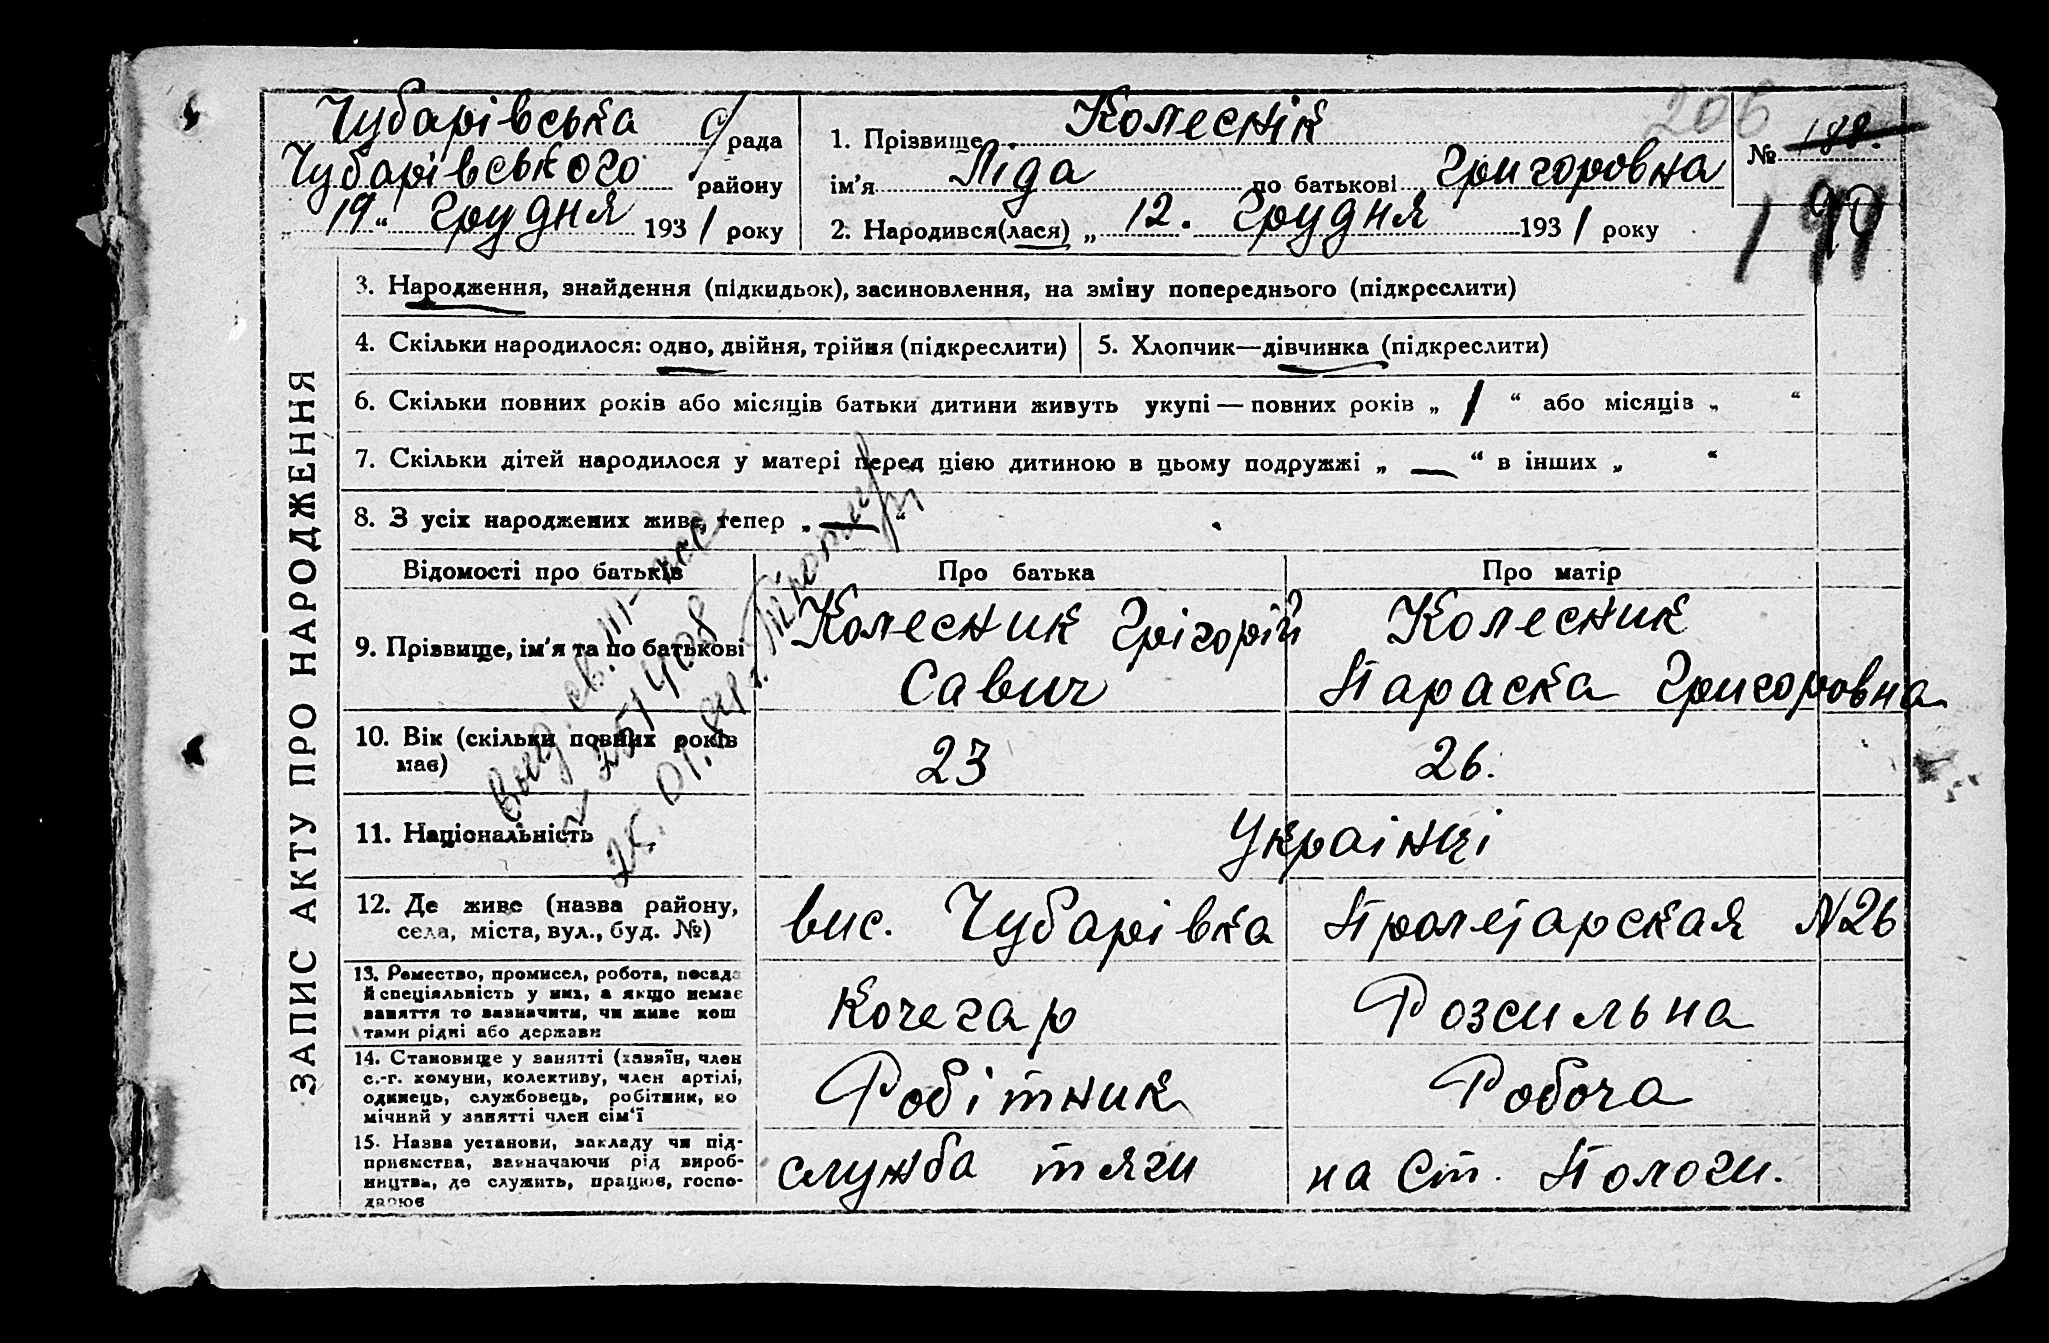 Чубарівська с/рада
Чубарівського району
„19“ Грудня 1931 року
1. Прізвище Колеснік
ім'я Ліда по батькові Григоровна
2. Народився(лася) „12. Грудня 1931 року
206
№ 188.
199
ЗАПИС АКТУ ПРО НАРОДЖЕННЯ
3. Народження, знайдення (підкидьок), засиновлення, на зміну попереднього (підкреслити)
4. Скільки народилося: одно, двійня, трійня (підкреслити)
5. Хлопчик—дівчинка (підкреслити)
6. Скільки повних років або місяців батьки дитини живуть укупі — повних років „ 1 “ або місяців „ “
7. Скільки дітей народилося у матері перед цією дитиною в цьому подружжі „ — “ в інших „ “
8. З усіх народжених живе, тепер „ — “
Відомості про батьків
Про батька
Про матір
9. Прізвище, ім'я та по батькові
Колесник Грігорій
Савич
Колесник
Параска Григоровна
10. Вік (скільки повних років
має)
23
26.
11. Національність
Украінці
12. Де живе (назва району,
села, міста, вул., буд. №)
вис. Чубарівка
Пролетарская N26
13. Ремество, промисел, робота, посада
й спеціяльність у них, а якщо немає
заняття то зазначити, чи живе кош
тами рідні або держави
Кочегар
Розсильна
14. Становище у занятті (хазяїн, член
с.-г. комуни, колективу, член артілі,
одинець, службовець, робітник, по
мічний у занятті член сім'ї
Робітник
Робоча
15. Назва установи, закладу чи під-
приємства, зазначаючи рід вироб-
ництва, де служить, працює, госпо-
дарює
служба тяги
на Ст. Пологи.
Выд. св. III-
251408
25.01.84г.